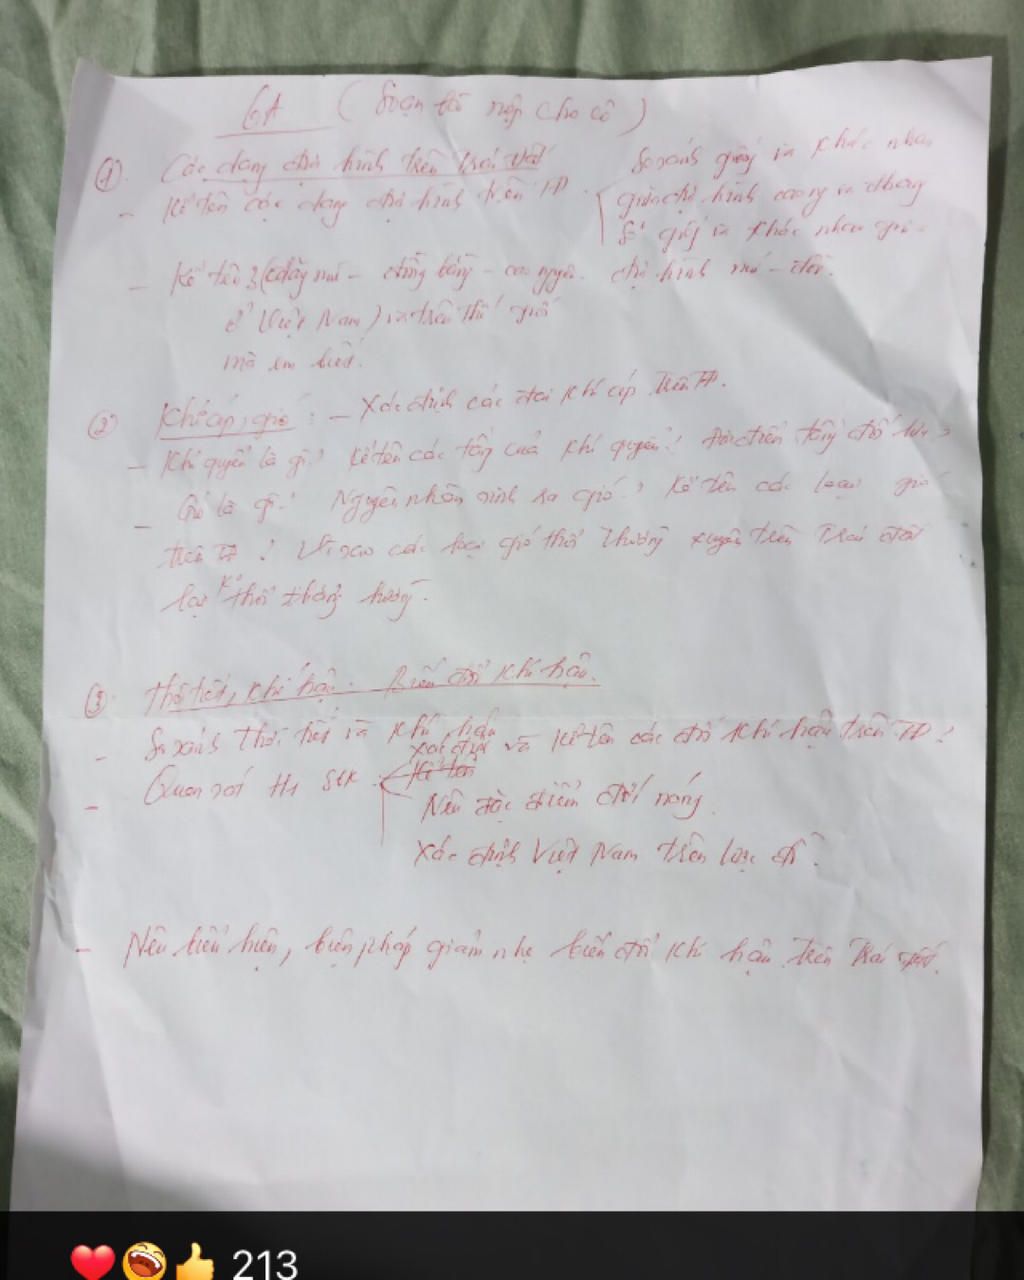 6A (Soạn rồi nộp cho cô)
① Các dạng địa hình trên trái đất
- Kể tên các dạng địa hình trên TĐ.
So sánh giống và khác nhau
giữa địa hình cao ng và đbằng
Sự giống và khác nhau giữa
địa hình núi - đồi.
- Kể tên 3 (dãy núi - đồng bằng - cao nguyên
ở Việt Nam) và trên thế giới
mà em biết.
② Khí áp, gió : - Xác định các đai khí áp trên TĐ.
- Khí quyển là gì? Kể tên các tầng của khí quyển? Đặc điểm tầng đối lưu?
- Gió là gì? Nguyên nhân sinh ra gió? Kể tên các loại gió
trên TĐ? Vì sao các loại gió thổi thường xuyên trên Trái đất
lại K° thổi thẳng hướng.
③ Thời tiết, khí hậu. Biến đổi khí hậu.
- So sánh thời tiết và khí hậu
- Quan sát H1 SGK
xác định và kể tên các đới khí hậu trên TĐ?
Nêu đặc điểm đới nóng.
Xác định Việt Nam trên lược đồ.
- Nêu biểu hiện, biện pháp giảm nhẹ biến đổi khí hậu trên Trái đất.
213